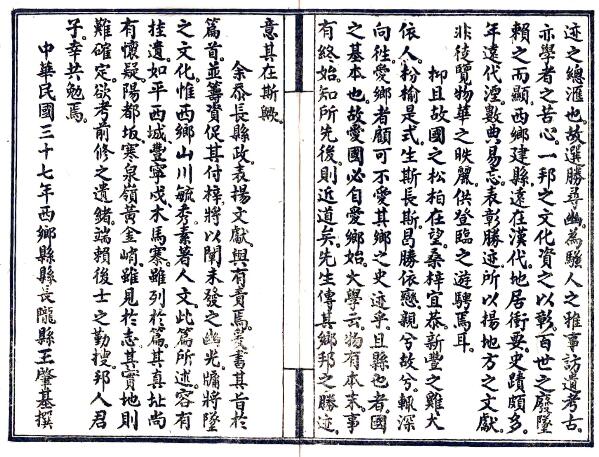 迹之總滙也。故選勝尋幽。為騷人之雅事。訪道考古。
亦學者之苦心。一邦之文化資之以彰。百世之廢墜
賴之而顯。西鄉建縣。遠在漢代。地居衝要。史蹟頗多。
年遠代湮。數典易忘。表彰勝迹。所以揚地方之文獻。
非徒覽物華之映麗。供登臨之遊騁焉耳。
抑且故國之松柏在望。桑梓宜恭。新豐之雞犬
依人。枌榆是式。生斯長斯。曷勝依戀。親兮故兮。輒深
向往。愛鄉者顧可不愛其鄉之史迹乎。且縣也者。國
之基本也。故愛國必自愛鄉始。大學云。物有本末。事
有終始。知所先後。則近道矣。先生傳其鄉邦之勝迹。
意其在斯歟。
余忝長縣政。表揚文獻。與有責焉。爰書其旨於
篇首。並籌貲促其付梓。將以闡未發之幽光。牖將墜
之文化。惟西鄉山川毓秀。素著人文。此篇所述。容有
挂遺。如平西城。豐寧戍。木馬寨。雖列於篇。其真址尚
有懷疑。陽都坂。寒泉嶺。黃金峭。雖見於志。其實地則
難確定。欲考前修之遺緒。端賴後士之勤搜。邦人君
子。幸共勉焉。
中華民國三十七年西鄉縣縣長隴縣王肇基撰